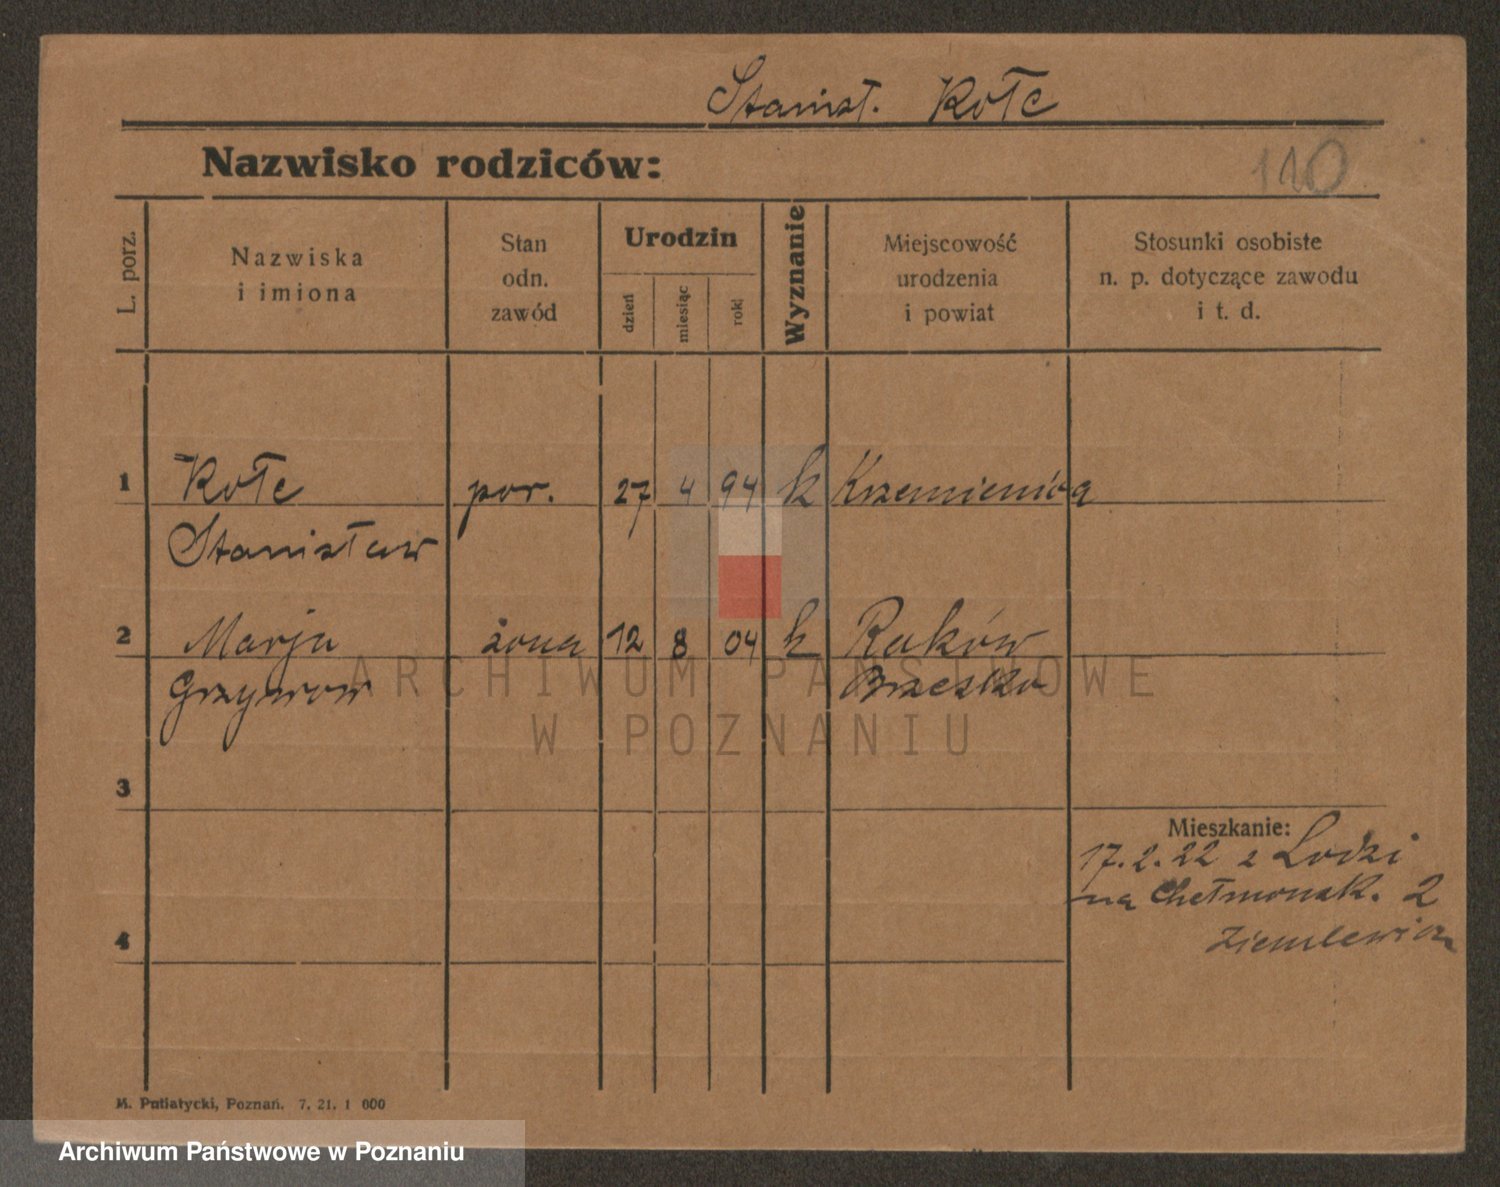 Stanisł. Kołc
Nazwisko rodziców:
110
L. porz.
Nazwiska
i imiona
Stan
odn.
zawód
Urodzin
dzień
miesiąc
rok
Wyznanie
Miejscowość
urodzenia
i powiat
Stosunki osobiste
n. p. dotyczące zawodu
i t. d.
1 Kołc por. 27 4 94 k Krzemienica
Stanisław
2 Marja żona 12 8 04 k Raków
Grzywow Brzesko
3
Mieszkanie:
17.2.22 z Lodzi
na Chełmonsk. 2
4
Ziemlewicz
M. Putiatycki, Poznań. 7. 21. 1 000
ARCHIWUM PAŃSTWOWE
W POZNANIU
Archiwum Państwowe w Poznaniu